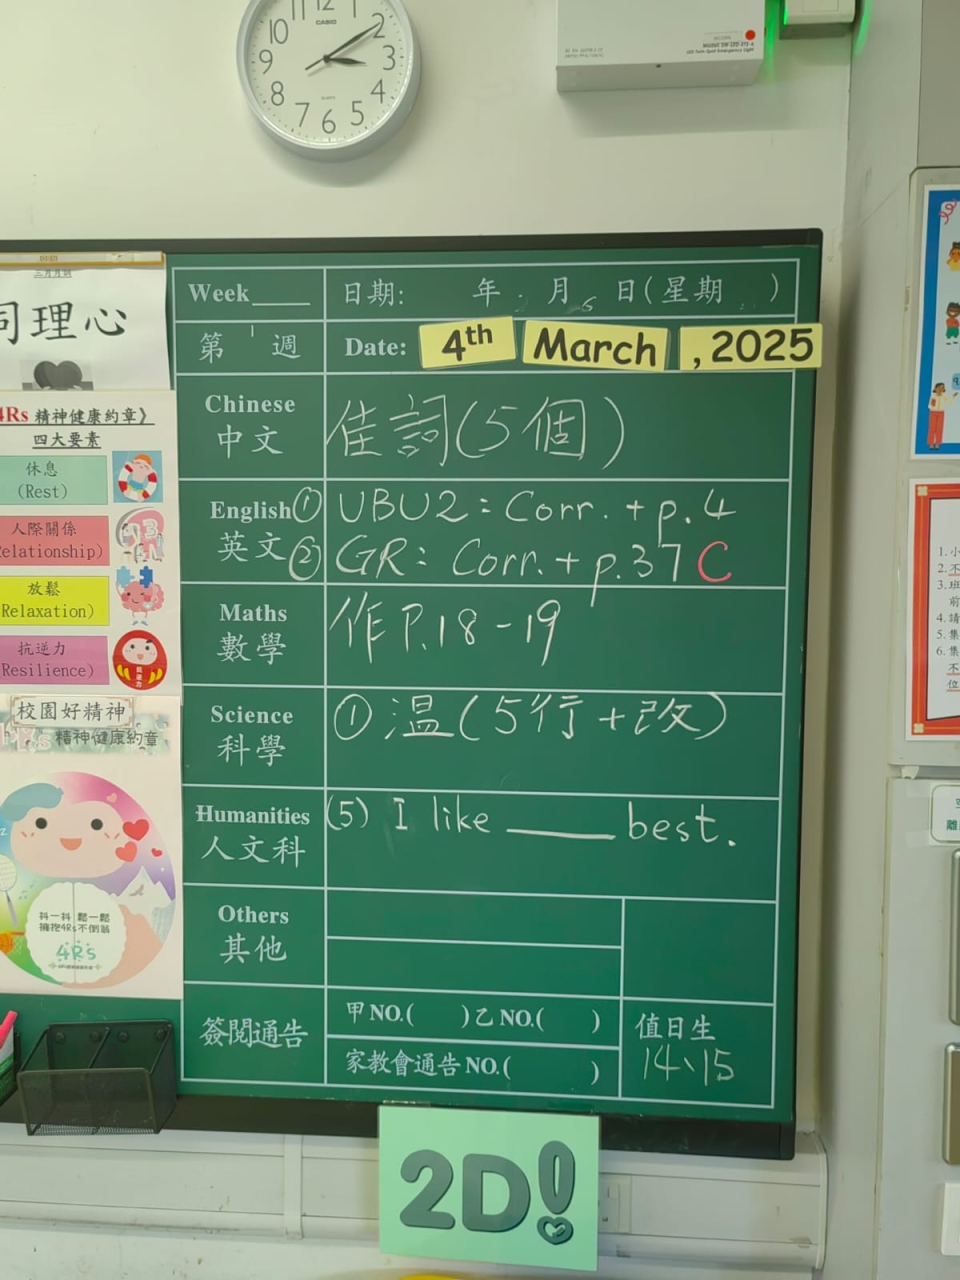 12
1
2
3
4
5
6
7
8
9
10
CASIO
QUARTZ
同理心
4Rs 精神健康約章》
四大要素
休息
(Rest)
人際關係
elationship)
放鬆
Relaxation)
抗逆力
Resilience)
校園好精神
精神健康約章
抖一抖 鬆一鬆
擁抱4Rs不倒翁
4Rs
Week____ 日期: 年 月 日(星期 )
第 週 Date: 4th March , 2025
Chinese
中文
佳詞(5個)
English
英文
① UBU2: Corr. + p.4
② GR: Corr. + p.37 C
Maths
數學
作P.18-19
Science
科學
① 溫(5行+改)
Humanities
人文科
(5) I like ____ best.
Others
其他
簽閱通告
甲NO.( )乙NO.( )
家教會通告NO.( )
值日生
14、15
2D!
1. 小
2. 不
3. 班
前
4. 請
5. 集
6. 集
不
位
離